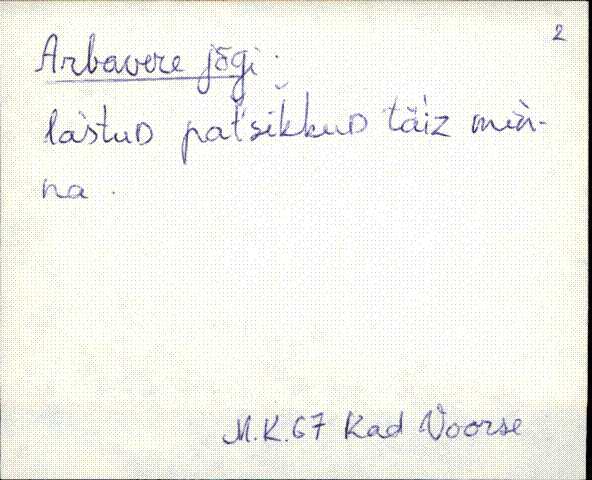 2
Arbavere jõgi.
la`stuᴅ pat'si`kkuᴅ täi`z min̆-
na.
M.K.67 Kad Voorse